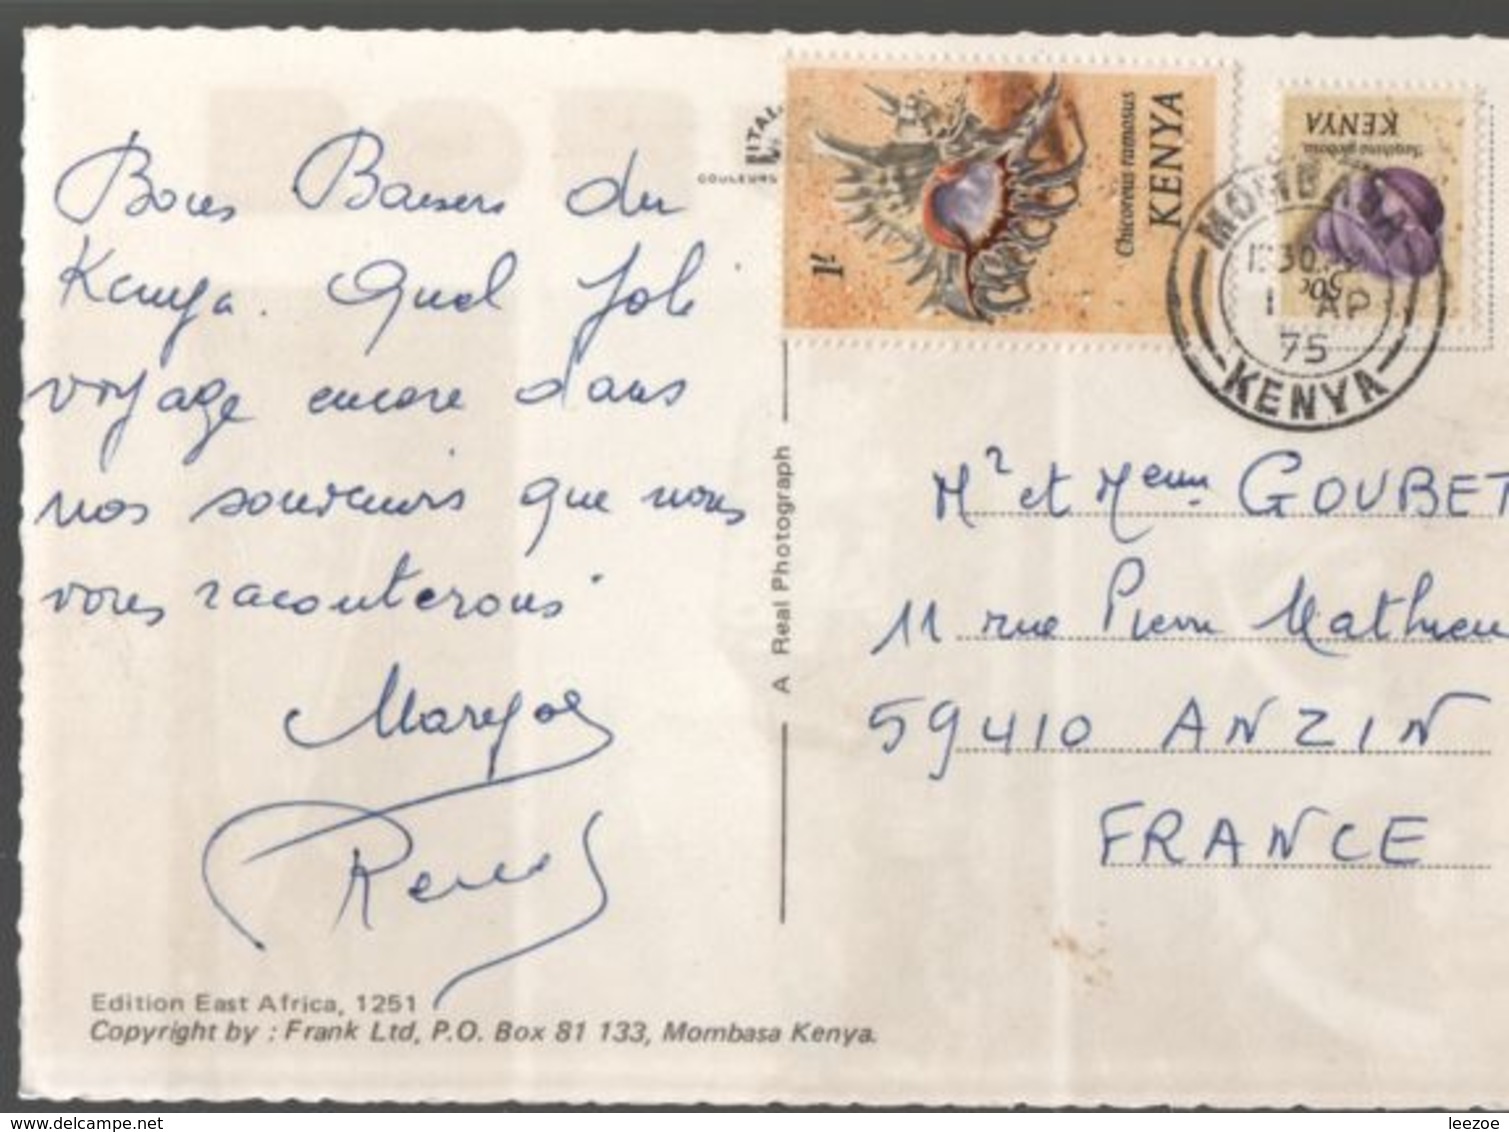 Bons Baisers du
Kenya. Quel joli
voyage encore dans
nos souvenirs que nous
vous raconterons
ITAL
COULEURS
Chicoreus ramosus
KENYA
1/-
KENYA
50c
MOMBASA
AP
75
KENYA
A Real Photograph
Mr et Mme GOUBET
11 rue Pierre Mathieu
59410 ANZIN
FRANCE
Edition East Africa, 1251
Copyright by : Frank Ltd, P.O. Box 81 133, Mombasa Kenya.
www.delcampe.net
leezoe